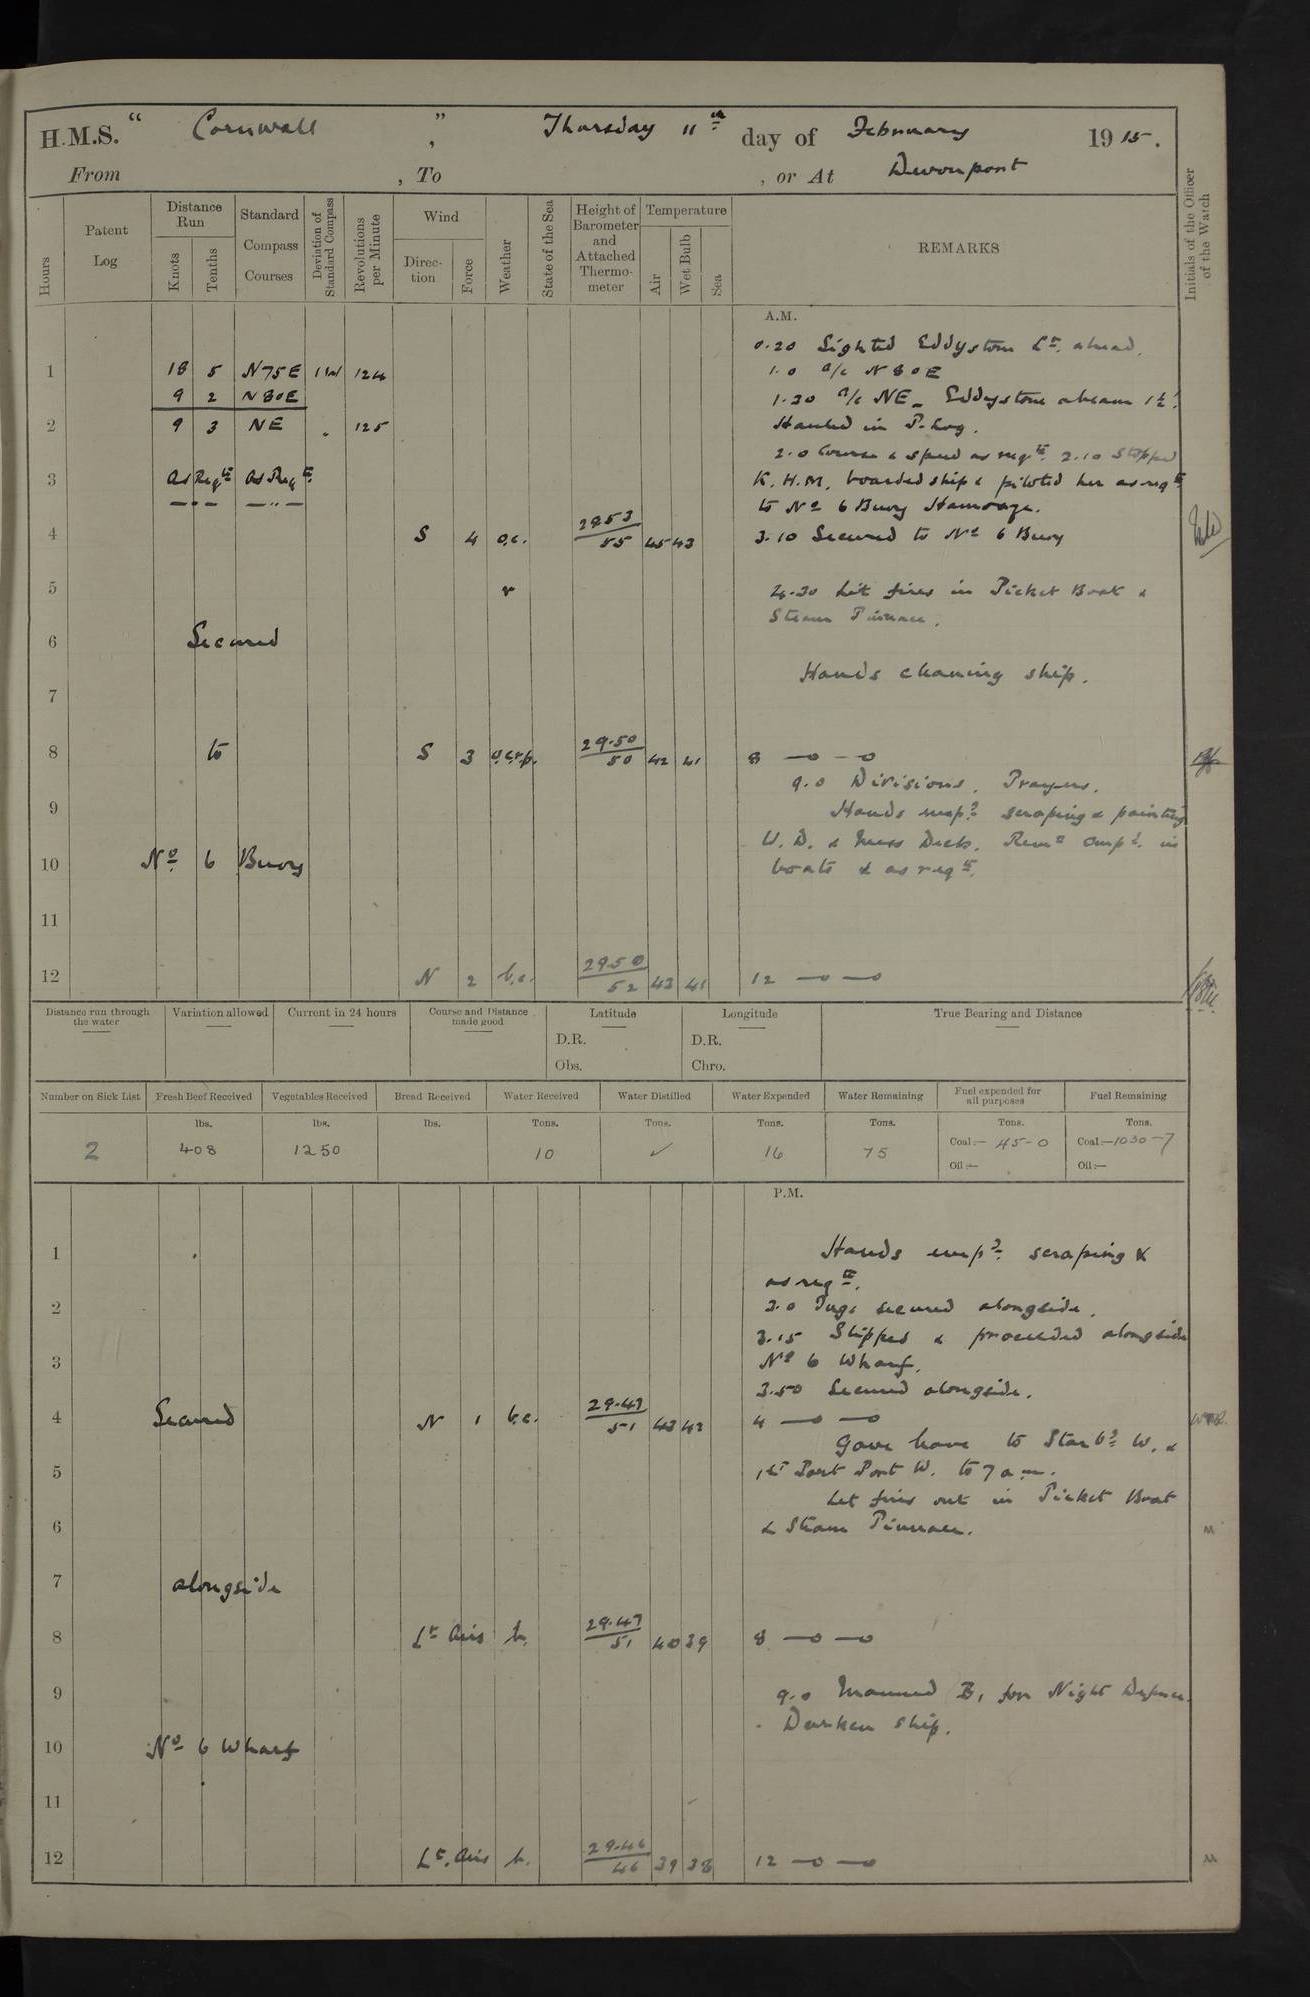 H.M.S. " Cornwall ", Thursday 11th day of February 1915.
From , To , or At Devonport
Hours
Patent Log
Distance Run
Knots
Tenths
Standard Compass Courses
Deviation of Standard Compass
Revolutions per Minute
Wind
Direction
Force
Weather
State of the Sea
Height of Barometer and Attached Thermometer
Temperature
Air
Wet Bulb
Sea
REMARKS
Initials of the Officer of the Watch
A.M.
0.20 Sighted Eddystone Lt. ahead.
1 18 5 N75E 1W 124 1.0 a/c N80E
9 2 N80E 1.30 a/c NE. Eddystone abeam 1½'.
2 9 3 NE " 125 Hauled in P. Log.
2.0 Course & speed as reqte. 2.10 Stopped
3 As Reqte As Reqte. K.H.M. boarded ship & piloted her as reqte
— " — — " — to No 6 Buoy Hamoaze.
4 S 4 o.c. 29.53/55 45 43 3.10 Secured to No 6 Buoy
5 r 4.30 Lit fires in Picket Boat &
Steam Pinnace.
6 Secured
Hands cleaning ship.
7
8 to S 3 o.c.r.p. 29.50/50 42 41 8 —o —o
9.0 Divisions. Prayers.
9 Hands empd. scraping & painting
U.D. & Mess Deck. Remr empd. in
10 No 6 Buoy boats & as reqte.
11
12 N 2 b.c. 29.50/52 43 41 12 —o —o
Distance run through the water
Variation allowed
Current in 24 hours
Course and Distance made good
Latitude
D.R.
Obs.
Longitude
D.R.
Chro.
True Bearing and Distance
Number on Sick List 2
Fresh Beef Received lbs. 408
Vegetables Received lbs. 1250
Bread Received lbs.
Water Received Tons. 10
Water Distilled Tons. ✓
Water Expended Tons. 16
Water Remaining Tons. 75
Fuel expended for all purposes Tons. Coal:— 45-0 Oil:—
Fuel Remaining Tons. Coal:—1030-7 Oil:—
P.M.
1 Hands empd. scraping &
as reqte.
2 3.0 Tugs secured alongside.
3.15 Slipped & proceeded alongside
3 No 6 Wharf.
3.50 Secured alongside.
4 Secured N 1 b.c. 29.47/51 43 42 4 —o —o
Gave leave to Starbd W. &
5 1st Part Port W. to 7 a.m.
Let fires out in Picket Boat
6 & Steam Pinnace.
7 alongside
8 Lt Airs b. 29.47/51 40 39 8 —o —o
9 9.0 Manned B, for Night Defence.
Darken ship.
10 No 6 Wharf
11
12 Lt. Airs b. 29.46/46 39 38 12 —o —o